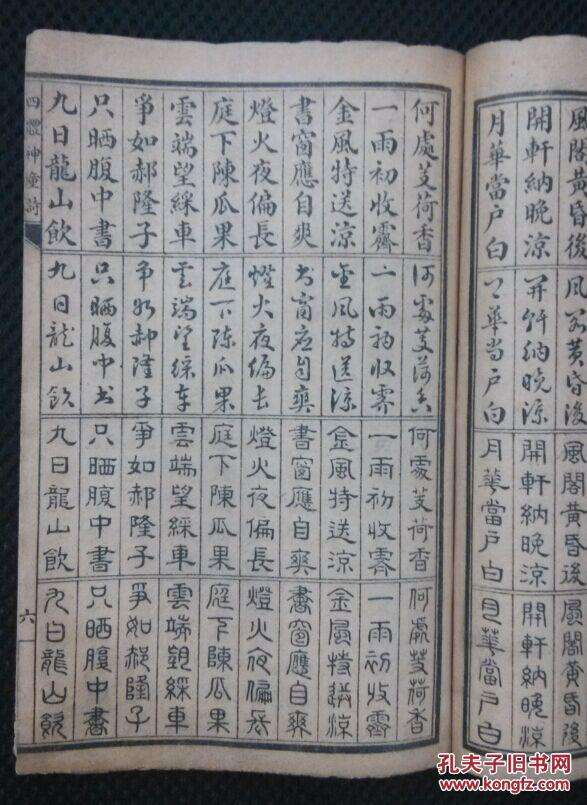 風閣黃昏後
開軒納晚涼
月華當戶白
風閣黃昏後
開軒納晚涼
月華當戶白
風閣黃昏後
開軒納晚涼
月華當戶白
風閣黃昏後
開軒納晚涼
月華當戶白
何處芰荷香
一雨初收霽
金風特送涼
書窗應自爽
燈火夜偏長
庭下陳瓜果
雲端望綵車
爭如郝隆子
只晒腹中書
九日龍山飲
何處芰荷香
一雨初收霽
金風特送涼
書窗應自爽
燈火夜偏長
庭下陳瓜果
雲端望綵車
爭如郝隆子
只晒腹中書
九日龍山飲
何處芰荷香
一雨初收霽
金風特送涼
書窗應自爽
燈火夜偏長
庭下陳瓜果
雲端望綵車
爭如郝隆子
只晒腹中書
九日龍山飲
何處芰荷香
一雨初收霽
金風特送涼
書窗應自爽
燈火夜偏長
庭下陳瓜果
雲端望綵車
爭如郝隆子
只晒腹中書
九日龍山飲
四體神童詩
六
孔夫子旧书网